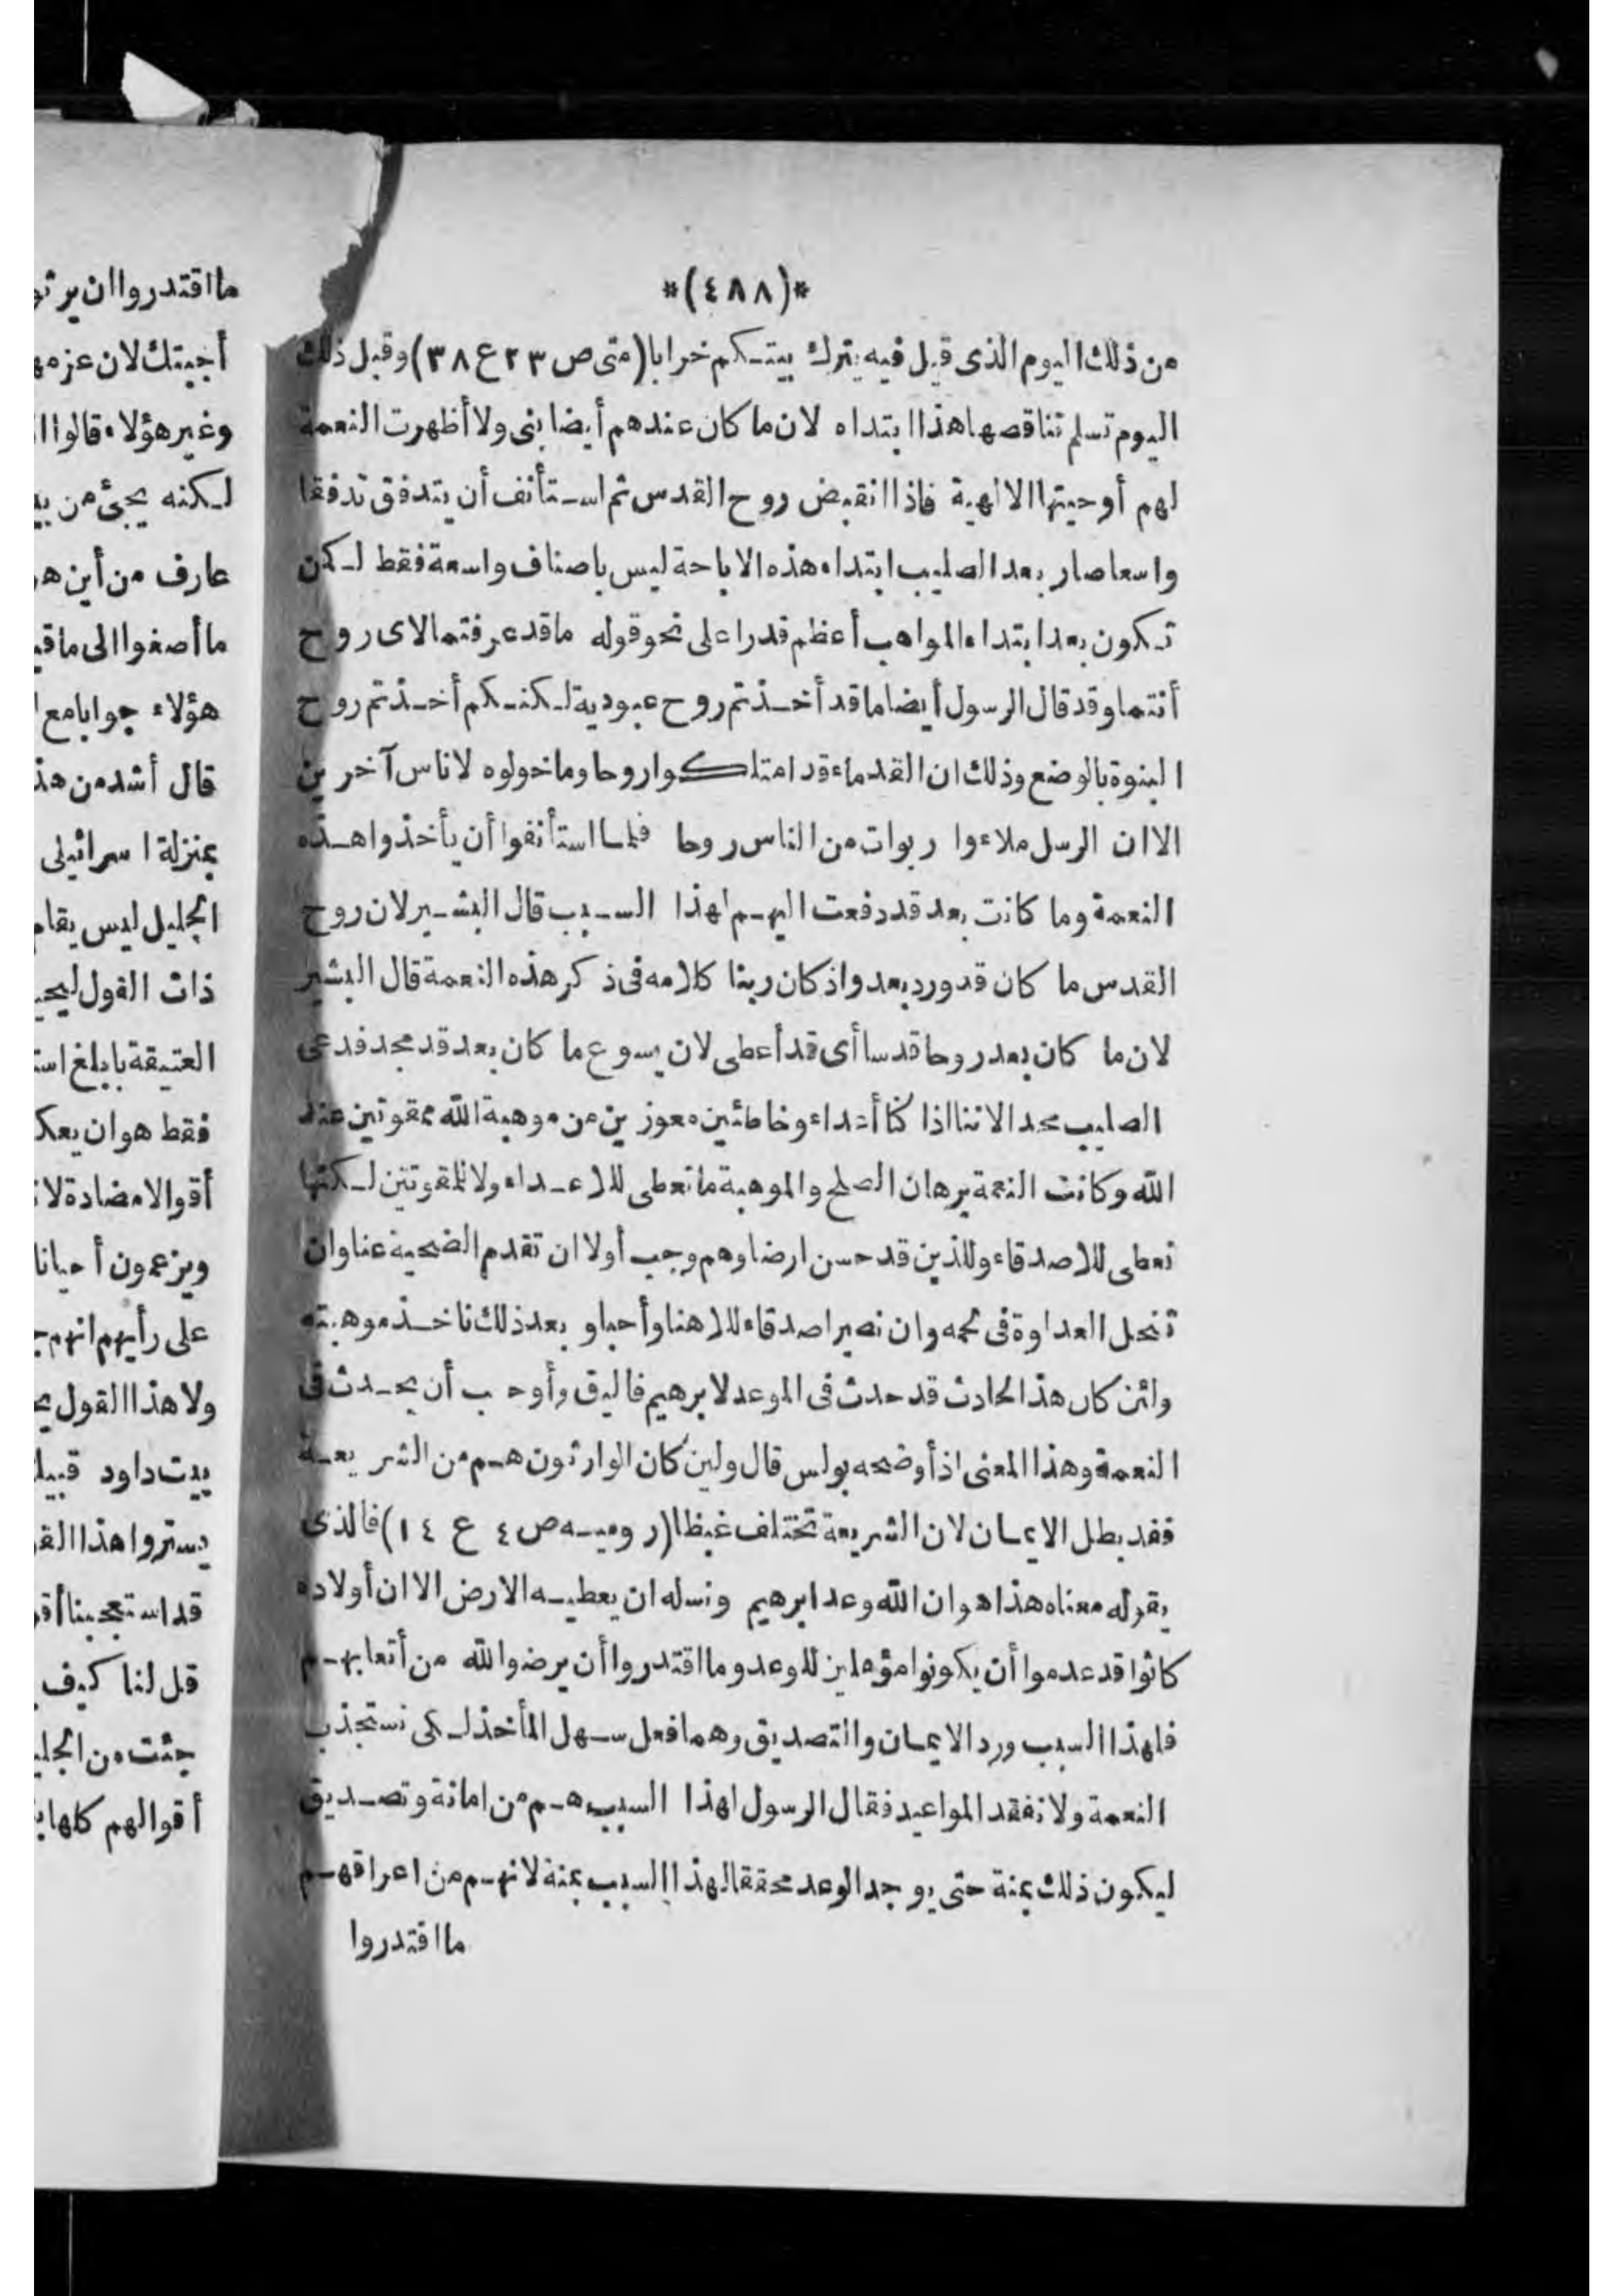 *(٤٨٨)*
من ذلك اليوم الذى قيل فيه يترك بيتكم خرابا (متى ص ٢٣ ع ٣٨) وقبل ذلك
اليوم تسلم تناقصها هذا ابتداه لان ما كان عندهم أيضا نبى ولا أظهرت النعمة
لهم أوحيتها الالهية فاذا انقبض روح القدس ثم استأنف أن يتدفق تدفقا
واسعا صار بعد الصليب ابتداء هذه الاباحة ليس باصناف واسعة فقط لكن
تكون بعد ابتداء المواهب أعظم قدرا على نحو قوله ما قد عرفتما لاى روح
أنتما وقد قال الرسول أيضا ما قد أخذتم روح عبودية لكنكم أخذتم روح
البنوة بالوضع وذلك ان القدماء قد امتلكوا روحا وما خولوه لاناس آخرين
الا ان الرسل ملاءوا ربوات من الناس روحا فلما استأنفوا أن يأخذوا هذه
النعمة وما كانت بعد قد دفعت اليهم لهذا السبب قال البشير لان روح
القدس ما كان قد ورد بعد واذ كان ربنا كلامه فى ذكر هذه النعمة قال البشير
لان ما كان بعد روحا قدسا أى قد أعطى لان يسوع ما كان بعد قد مجد فدعى
الصليب مجدا لاننا اذا كنا أعداء وخاطئين معوزين من موهبة الله ممقوتين عند
الله وكانت النعمة برهان الصلح والموهبة ما تعطى للاعداء ولا للمقوتتن لكنها
تعطى للاصدقاء وللذين قد حسن ارضاوهم وجب أولا ان تقدم الضحية عنا وان
تنحل العداوة فى لحمه وان نصير اصدقاء للاهنا وأحباو بعد ذلك ناخذ موهبته
وائن كان هذا الحادث قد حدث فى الموعد لابرهيم فاليق وأوجب أن يحدث فى
النعمة وهذا المعنى اذ أوضحه بولس قال ولين كان الوارثون هم من الشريعة
فقد بطل الايمان لان الشريعة تختلف غيظا (روميه ص ٤ ع ١٤) فالذى
يقوله معناه هذا هو ان الله وعد ابرهيم ونسله ان يعطيه الارض الا ان أولاده
كانوا قد عدموا أن يكونوا مؤهلين للوعد وما اقتدروا أن يرضوا الله من أتعابهم
فلهذا السبب ورد الايمان والتصديق وهما فعل سهل المأخذ لكى نستجذب
النعمة ولا نفقد المواعيد فقال الرسول لهذا السبب هم من امانة وتصديق
ليكون ذلك بمنة حتى يوجد الوعد محققا لهذا السبب بمنة لانهم من اعراقهم
ما اقتدروا
ما اقتدروا ان يرثو
أجبتك لان عزمه
وغير هؤلاء قالوا
لكنه يجئ من
عارف من أين
ما أصغوا الى ما
هؤلاء جوابا مع
قال أشد من هذ
بمنزلة اسرائيلى
الجليل ليس يقام
ذات القول
العتيقة بابلغ
فقط هو ان
أقوالا مضادة
ويزعمون أحيانا
على رأيهم انهم
ولا هذا القول
بيت داود
يستروا هذا
قد استعجبنا
قل لنا كيف
جئت من
أقوالهم كلها